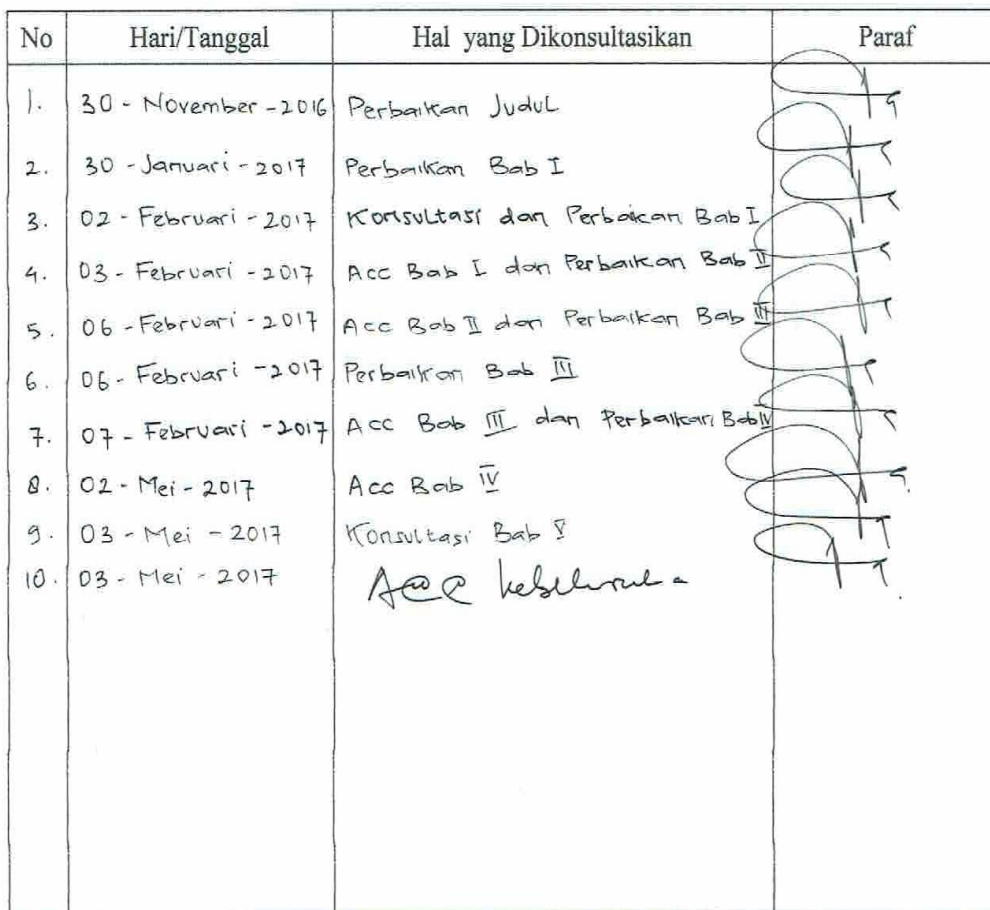 No Hari/Tanggal Hal yang Dikonsultasikan Paraf
1. 30 - November - 2016 Perbaikan Judul
2. 30 - Januari - 2017 Perbaikan Bab I
3. 02 - Februari - 2017 Konsultasi dan Perbaikan Bab I
4. 03 - Februari - 2017 Acc Bab I dan Perbaikan Bab II
5. 06 - Februari - 2017 Acc Bab II dan Perbaikan Bab III
6. 06 - Februari - 2017 Perbaikan Bab III
7. 07 - Februari - 2017 Acc Bab III dan Perbaikan Bab IV
8. 02 - Mei - 2017 Acc Bab IV
9. 03 - Mei - 2017 Konsultasi Bab V
10. 03 - Mei - 2017 Acc